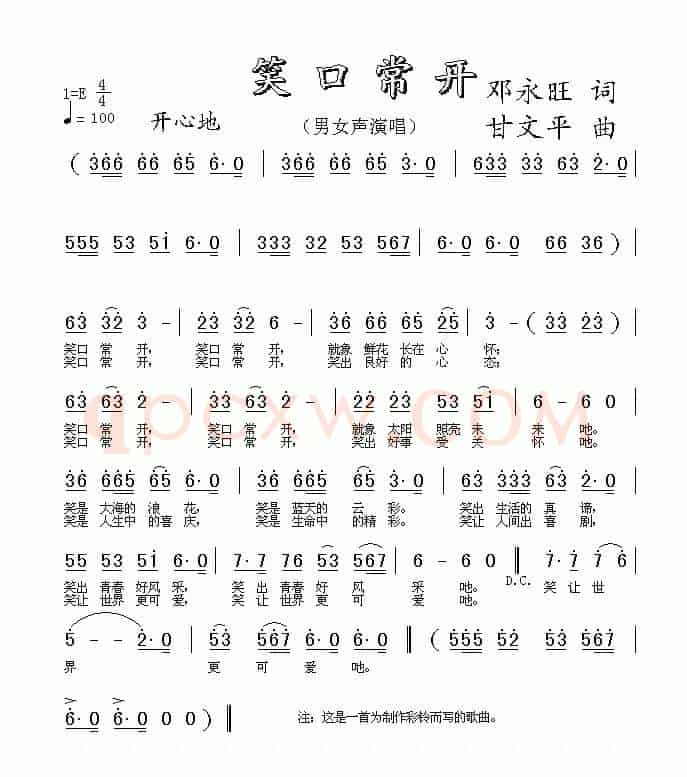 笑口常开
1=E 4/4
♩= 100 开心地 (男女声演唱)
邓永旺 词
甘文平 曲
( 366 66 65 6· 0 | 366 66 65 6· 0 | 633 33 63 2· 0 |
555 53 51 6· 0 | 333 32 53 567 | 6· 0 6· 0 66 36 ) |
63 32 3 - | 23 32 6 - | 36 66 65 25 | 3 - ( 33 23 ) |
笑口 常 开, 笑口 常 开, 就象 鲜花 长在 心 怀;
笑口 常 开, 笑口 常 开, 笑出 良好 的 心 态;
63 63 2 - | 33 63 2 - | 36 66 53 51 | 6 - 6 0 |
笑口 常 开, 笑口 常 开, 就象 太阳 照亮 未 来 吔。
笑口 常 开, 笑口 常 开, 笑出 好事 爱 关 怀 吔。
36 665 65 6· 0 | 36 665 65 6· 0 | 63 333 63 2· 0 |
笑是 大海的 浪 花, 笑是 蓝天的 云 彩。 笑出 生活的 真 谛,
笑是 人生中 的喜 庆, 笑是 生命中 的精 彩。 笑让 人间出 喜 剧,
55 53 51 6· 0 | 7· 7 76 53 567 | 6 - 6· 0 ‖ 7· 7 7 6 |
笑出 青春 好风 采, 笑 出 青春 好 风 采 吔。 D.C. 笑 让 世
笑让 世界 更可 爱, 笑 让 世界 更 可 爱 吔。
5 - - 2· 0 | 53 567 6· 0 ‖ ( 555 52 53 567 |
界 更 可 爱 吔。
6· 0 6· 0 0 0 ) ‖ 注: 这是一首为制作彩铃而写的歌曲。
qpcxw.COM